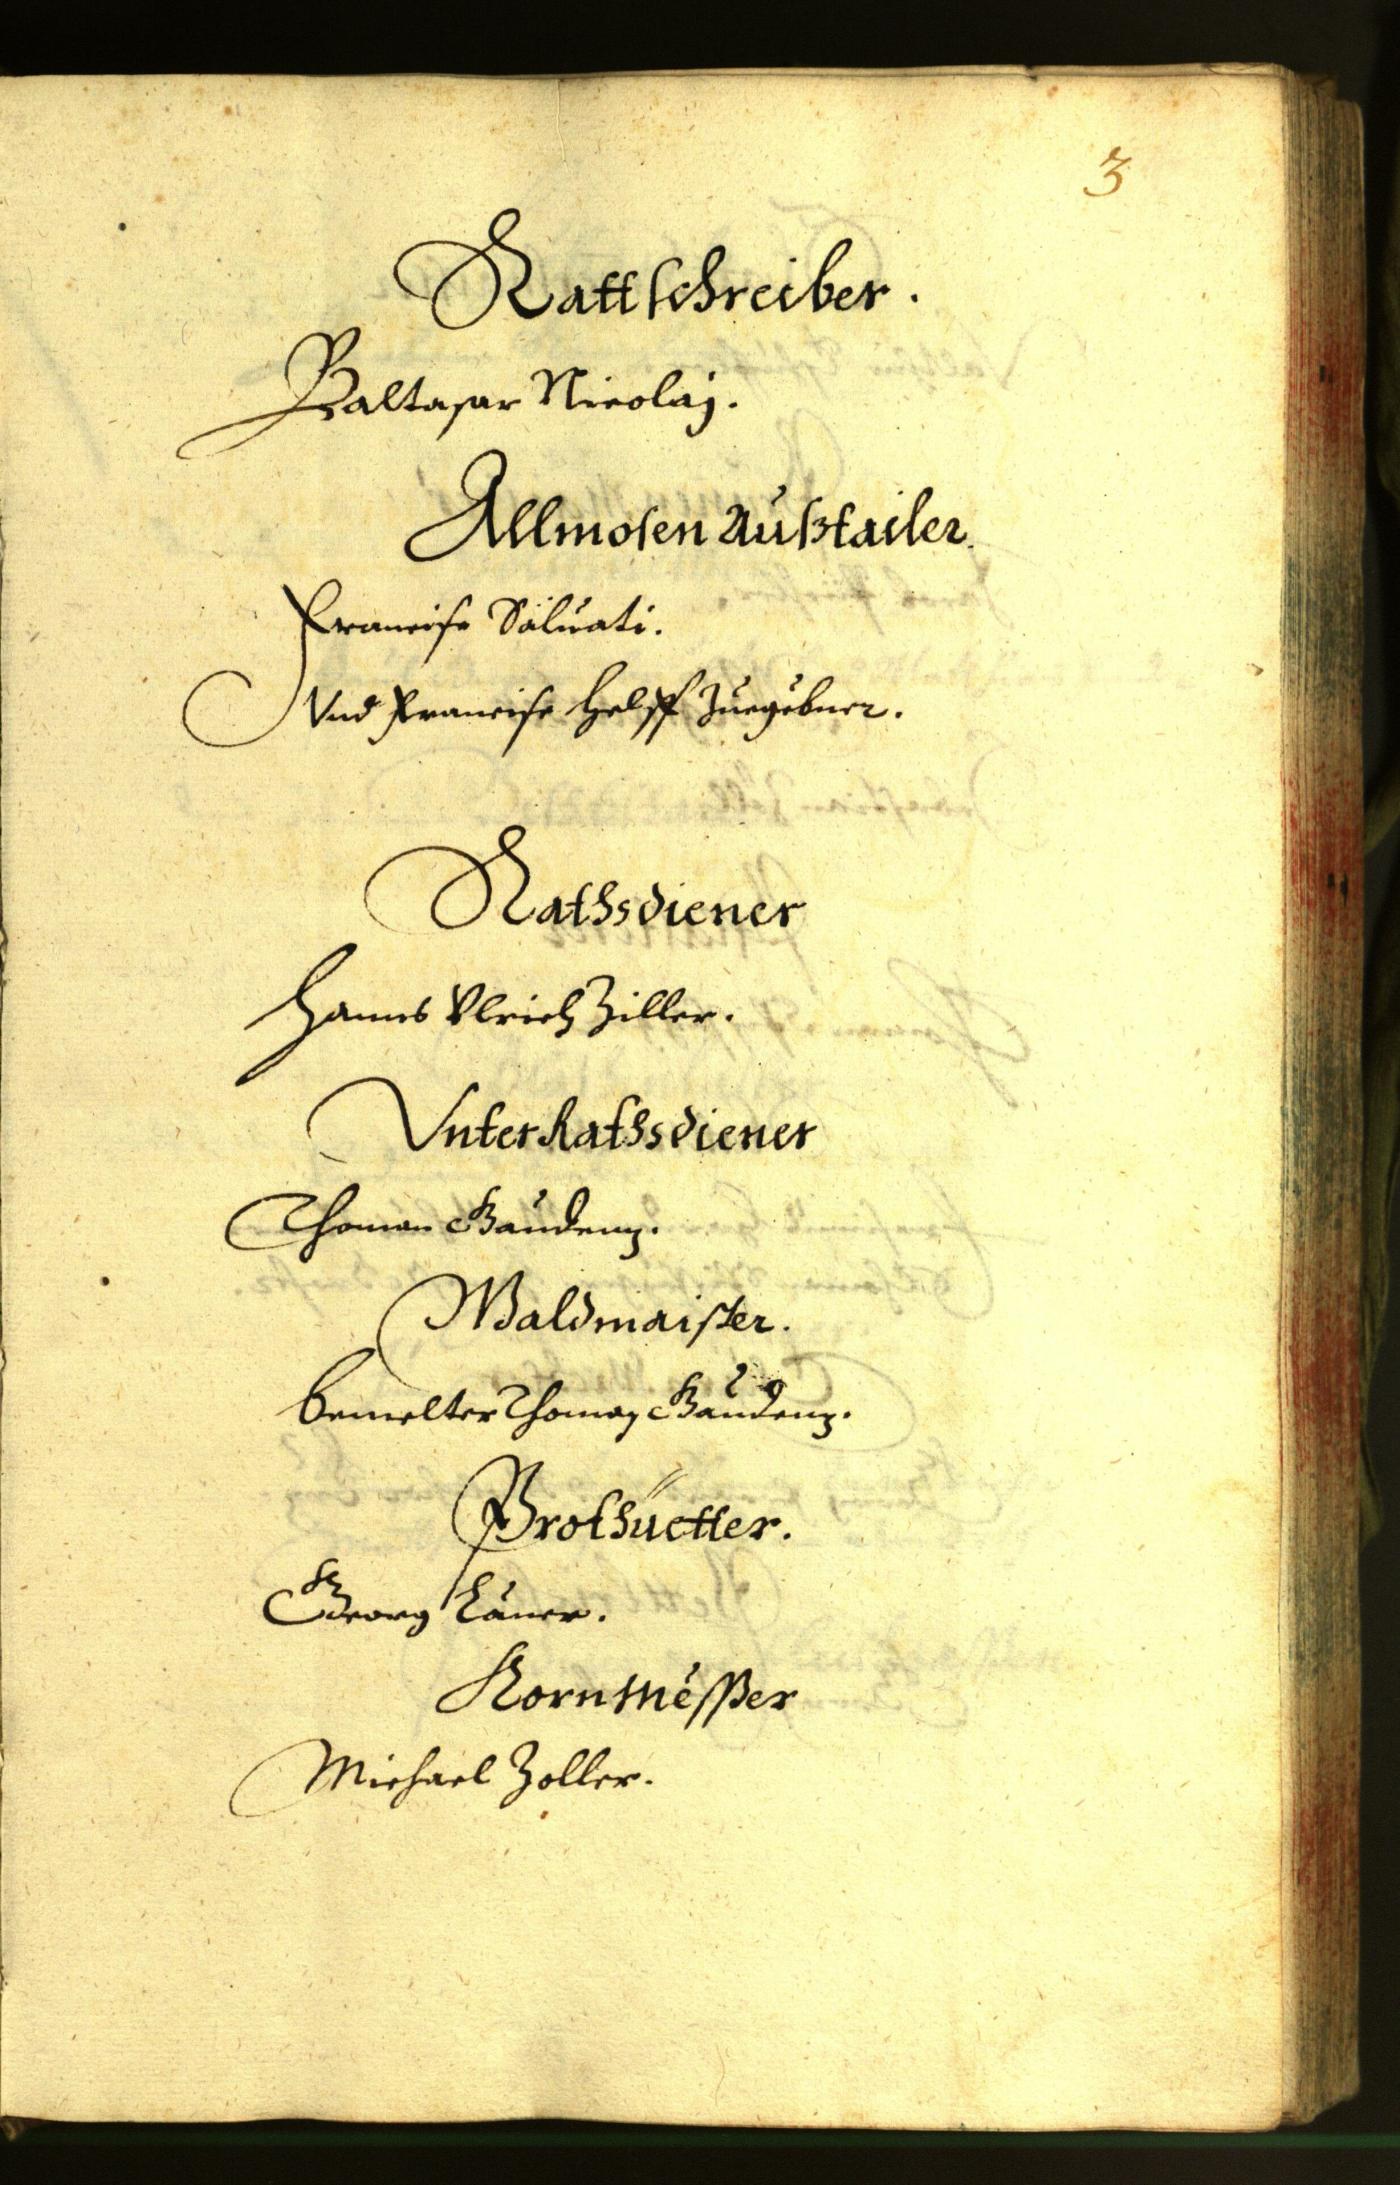 3
Rattschreiber.
Baltasar Nicolaj.
Allmosen Außtailer
Francisc Saluati.
Vnd Francisc Helff Zuegebner.
Rathsdiener
Hanns Vlrich Ziller.
Vnter Rathsdiener
Thoman Gaudenz.
Waldmaister.
bemelter Thoman Gaudenz.
Brothüetter.
Georg
Kornmesser
Michael Zoller.